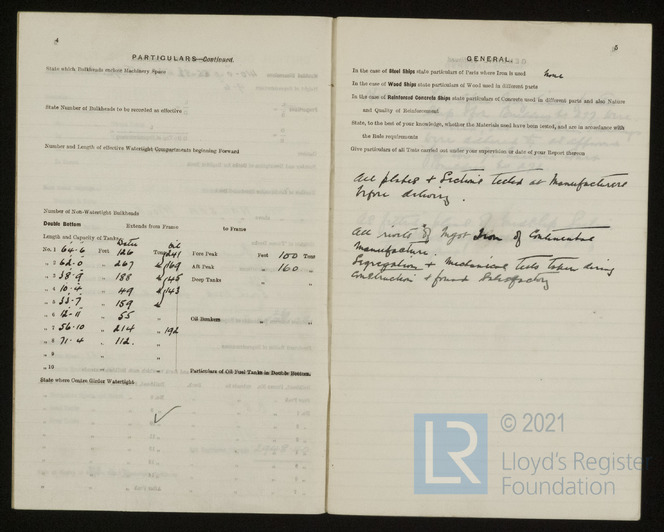 4
PARTICULARS—Continued.
State which Bulkheads enclose Machinery Space
State Number of Bulkheads to be recorded as effective
Number and Length of effective Watertight Compartments beginning Forward
Number of Non-Watertight Bulkheads
Double Bottom Extends from Frame to Frame
Length and Capacity of Tanks. Water Oil
No. 1 64.6 Feet 126 Tons 241 Fore Peak Feet 100 Tons
„ 2 62.0 „ 267 „ 169 Aft Peak „ 160 „
„ 3 38.9 „ 188 „ 145 Deep Tanks „ „
„ 4 10.4 „ 49 „ 143
„ 5 33.7 „ 159 „
„ 6 12-11 „ 55 „ Oil Bunkers „ „
„ 7 56.10 „ 214 „ 192
„ 8 71.4 „ 112.
„ 9 „ „
„ 10 „ „ Particulars of Oil Fuel Tanks in Double Bottom.
State where Centre Girder Watertight
5
GENERAL.
In the case of Steel Ships state particulars of Parts where Iron is used None
In the case of Wood Ships state particulars of Wood used in different parts
In the case of Reinforced Concrete Ships state particulars of Concrete used in different parts and also Nature
and Quality of Reinforcement
State, to the best of your knowledge, whether the Materials used have been tested, and are in accordance with
the Rule requirements
Give particulars of all Tests carried out under your supervision to date of your Report thereon
All plates & Sections tested at Manufacturers
before delivery.
All rivets of Ingot Iron of Continental
Manufacture.
Segregation & Mechanical Tests taken during
Construction & found Satisfactory
LR © 2021
Lloyd's Register
Foundation